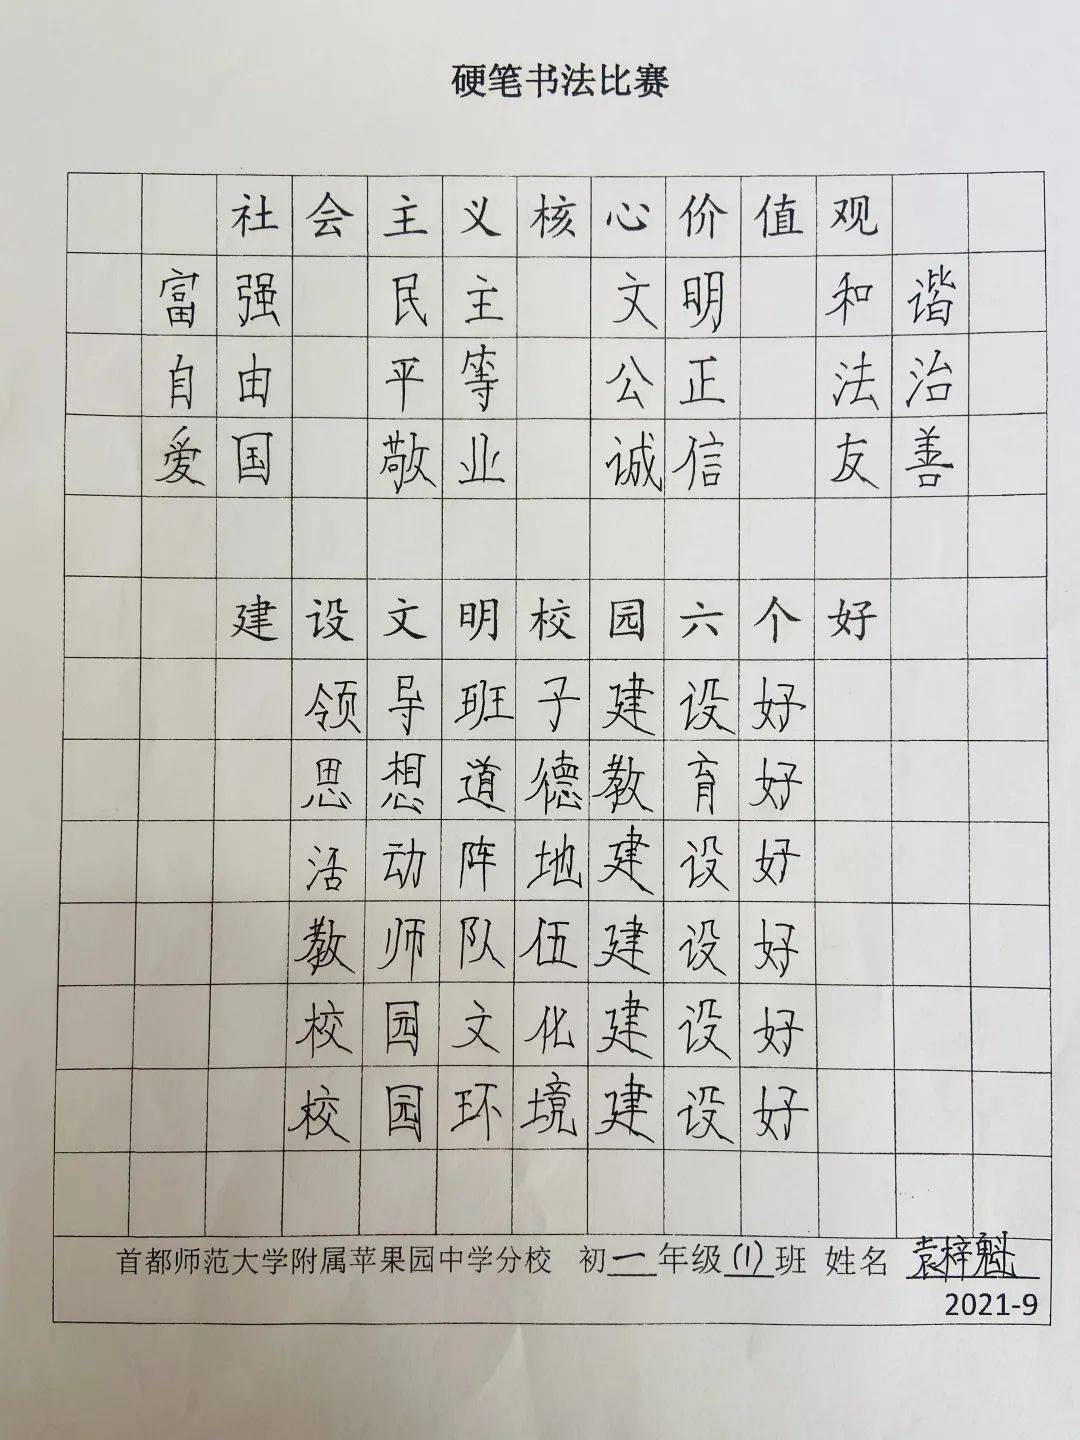 硬笔书法比赛
社会主义核心价值观
富强 民主 文明 和谐
自由 平等 公正 法治
爱国 敬业 诚信 友善
建设文明校园六个好
领导班子建设好
思想道德教育好
活动阵地建设好
教师队伍建设好
校园文化建设好
校园环境建设好
首都师范大学附属苹果园中学分校 初一年级(1)班 姓名 袁梓魁
2021-9